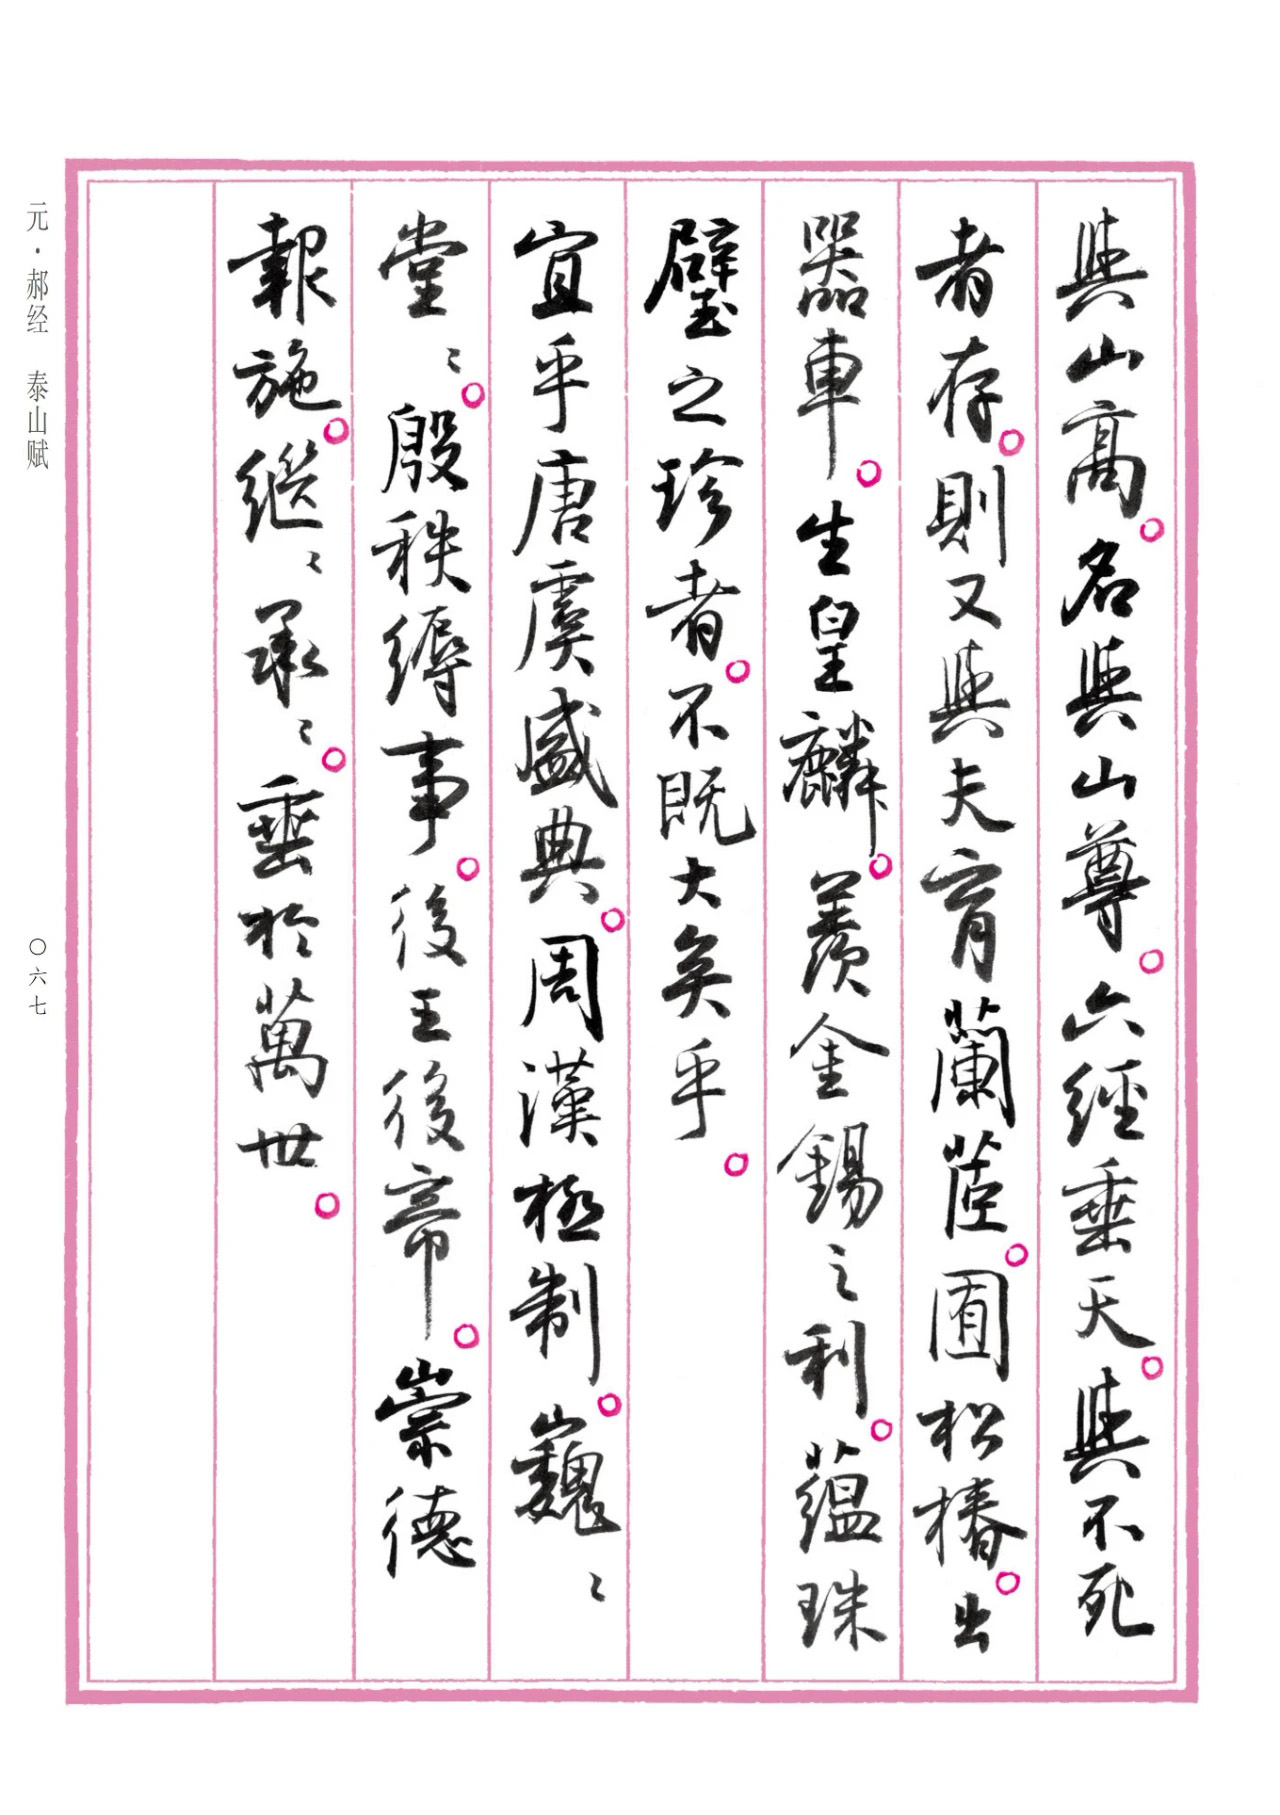 與山高。名與山尊。六經垂天。與不死
者存。則又與夫育蘭茝。囿松椿。出
器車。生皇麟。羨金錫之利。蘊珠
璧之珍者。不既大矣乎。
宜乎唐虞盛典。周漢極制。巍〻
堂〻。殷秩縟事。後王後帝。崇德
報施。繼〻承〻。垂於萬世。
元·郝经 泰山赋
〇六七